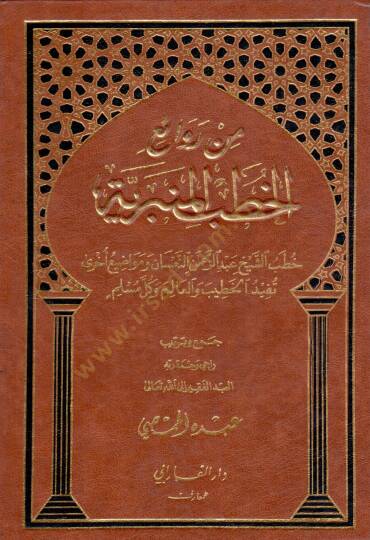 من روائع
الخطب المنبرية
خطب الشيخ عبد الرحمن النعسان ومواضيع أخرى
تفيد الخطيب والعالم وكل مسلم
جمع وترتيب
راجي رحمة ربه
العبد الفقير إلى الله تعالى
عبده الحمصي
دار الفارابي
للمعارف